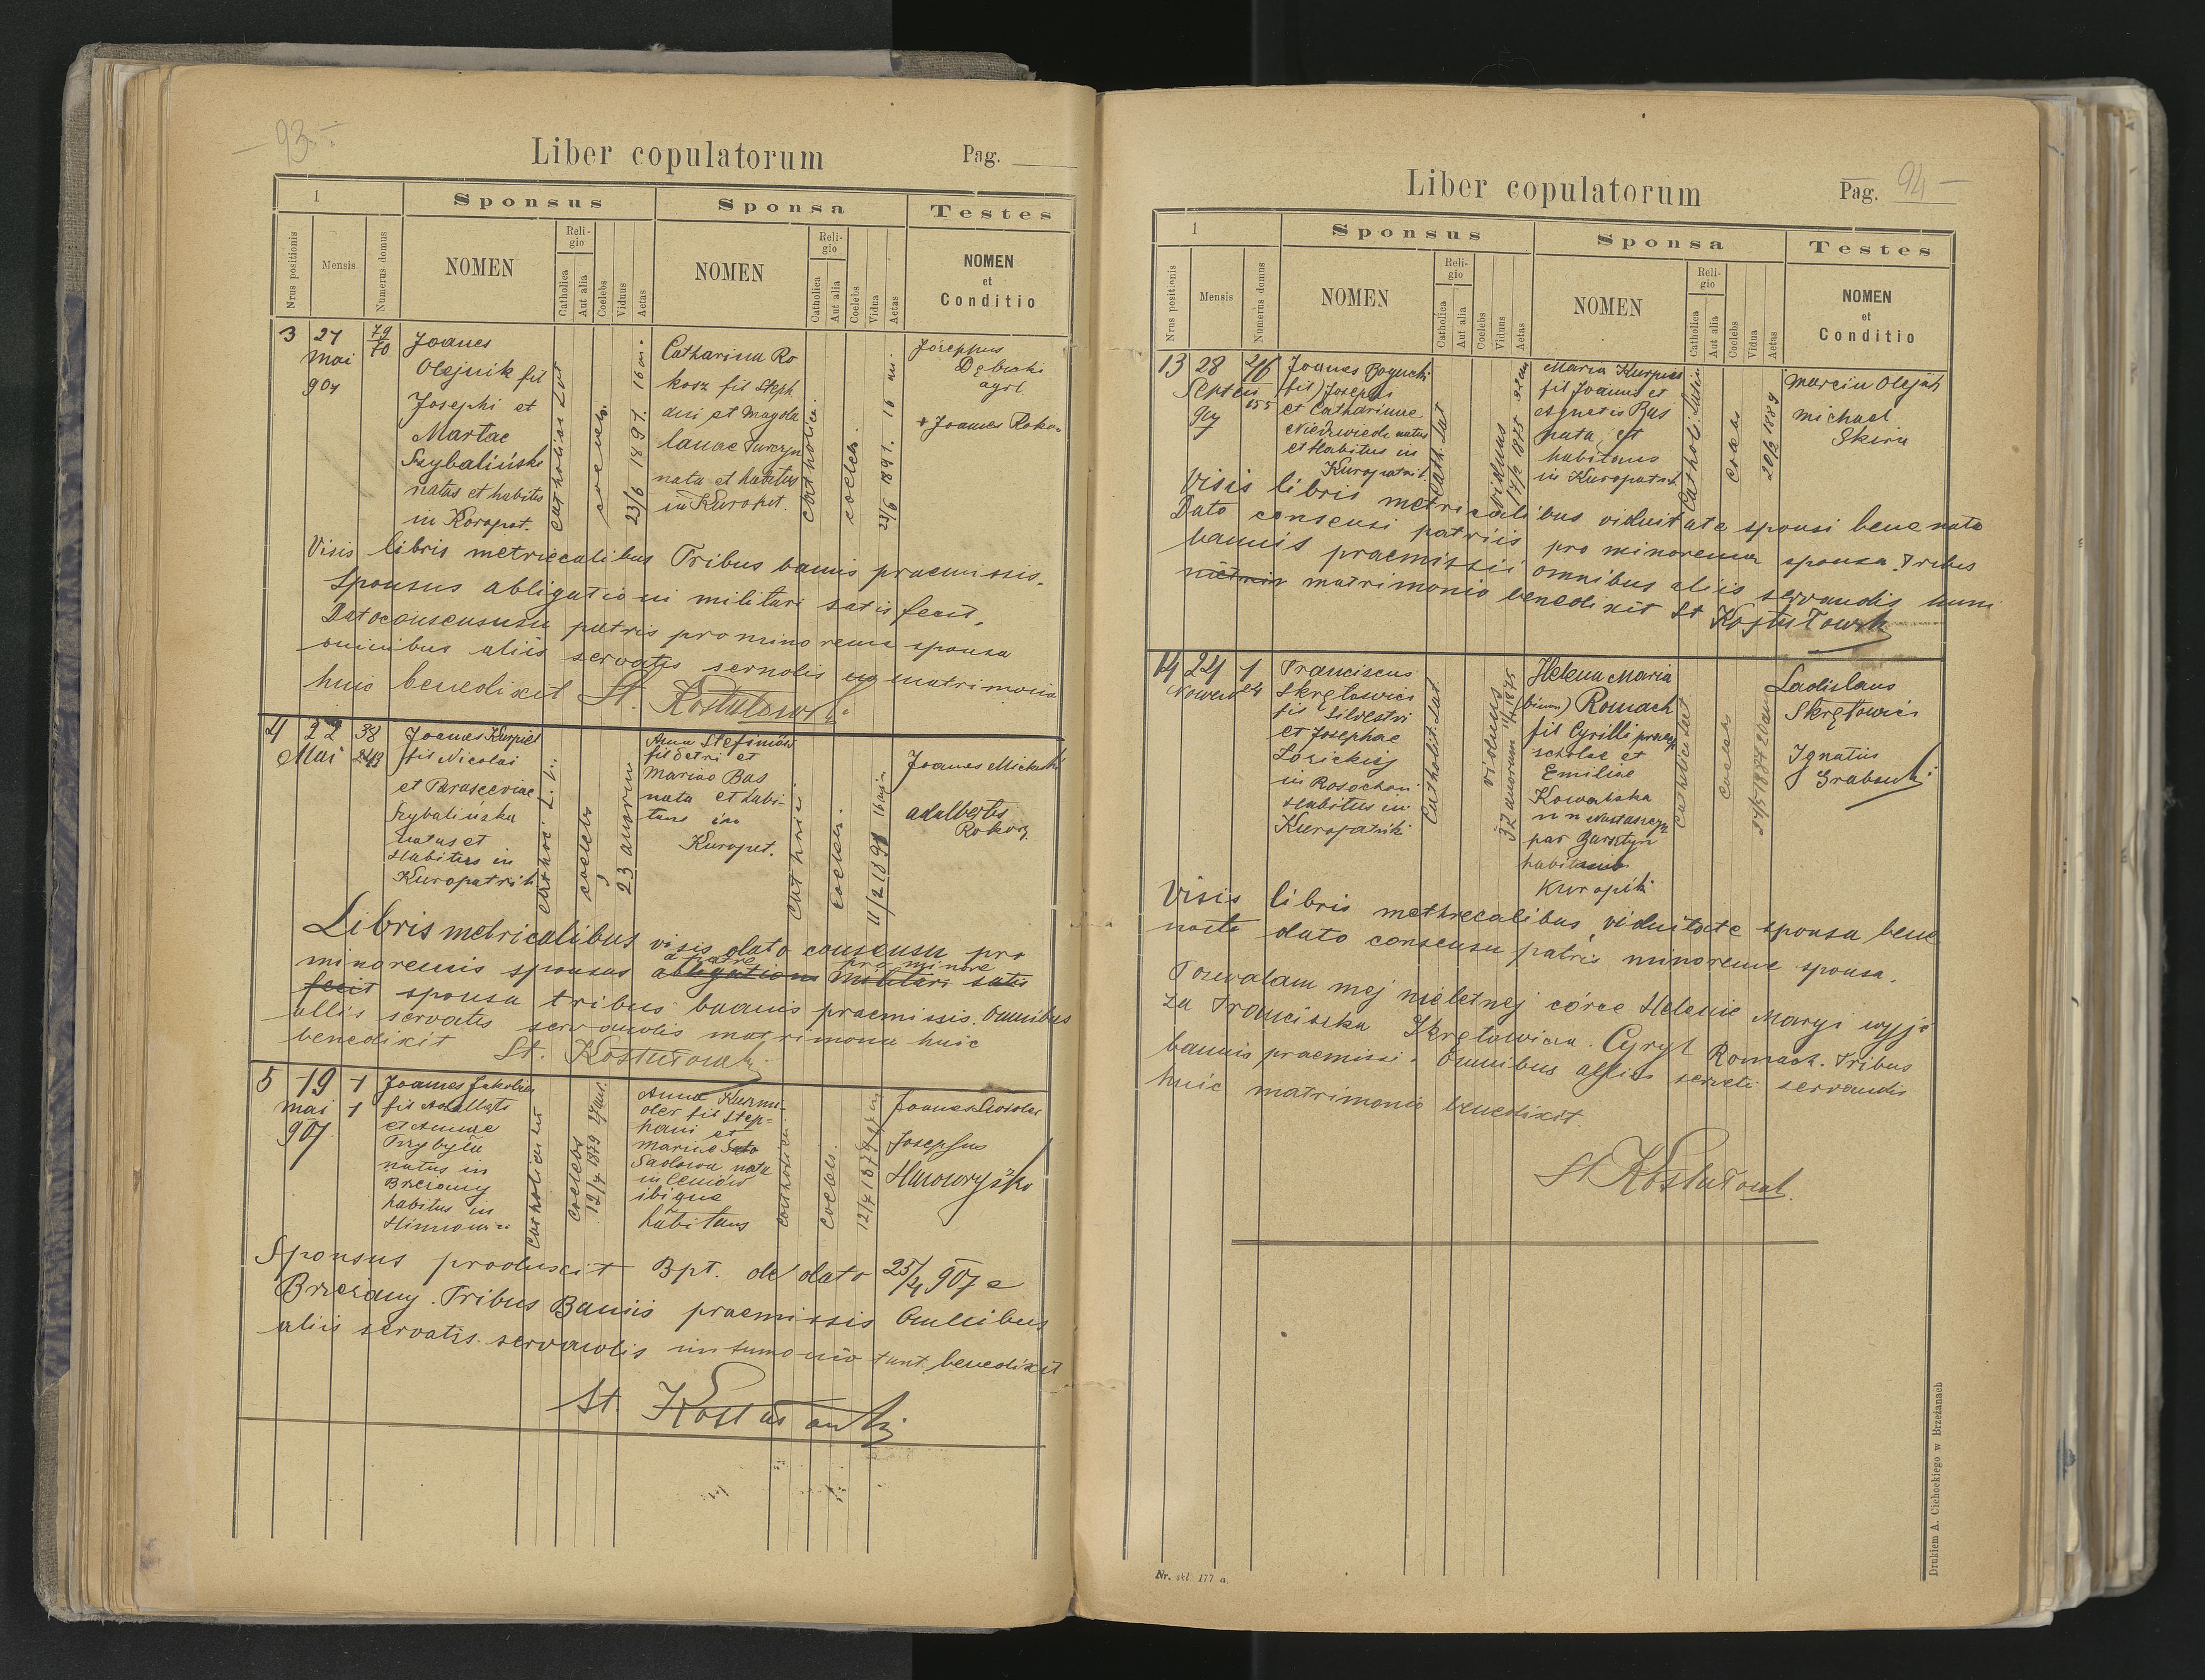 93
Liber copulatorum
Pag.
1
Sponsus
Sponsa
Testes
Nrus positionis
Mensis
Numerus domus
NOMEN
Religio
Catholica
Aut alia
Coelebs
Viduus
Aetas
NOMEN
Religio
Catholica
Aut alia
Coelebs
Vidua
Aetas
NOMEN
et
Conditio
3 27
Mai
907
79
70
Joanes
Olejnik fil
Josephi et
Martae
Szybalińska
natus et habitus
in Koropat.
coelebs
Catharina Ro
kosz fil Steph
ani et Magda
lanae
nata et habitus
in Kuropat.
coelebs
23/6 1891. 16 an.
Josephus
Dębicki
agrl.
Joames Rokosz
Visis libris metriecalibus Tribus banis praemissis.
Sponsus abligationi militari satis fecit.
Dato consensusu patris pro minorenu sponsa
omnibus aliis servatis servolis matrimonio
huic benedixit St. Kostutowski
4 22
Mai
38
243
Joames Kurpiel
fil Nicolai
et Parasceviae
Szybalińska
natus et
Habitus in
Kuropatnik
coelebs
23 anorum
Anna Stefiniów
fil Petri et
Mariae Bas
nata et habi-
tans in
Kuropat.
coelebs
11/2 1891 16
Joames Michalski
adalbertus
Rokosz
Libris metricalibus visis dato consensu pro
minorenis sponsus a patre pro minore
abligationi militari satis
fecit sponsa tribus bannis praemissis. Omnibus
allis servatis servandis matrimonu huic
benedixit St. Kostutowski
5 19
Mai
907
1
1
Joames Jakobies
fil Adalberti
et Annae
Przybyła
natus in
Brzezany
habitus in
coelebs
12/4 1879
Anna Kuzmi-
fil Step-
hani et
Mariae
Sadowa nata
in
ibique
habitans
coelebs
Josephus
Sponsus produxit Bpt. de dato 25/4 907 e
Brzezany. Tribus Bannis praemissis Omnibus
aliis servatis. servandis benedixit
St Kostutowski
Liber copulatorum
Pag. 94
1
Sponsus
Sponsa
Testes
Nrus positionis
Mensis
Numerus domus
NOMEN
Religio
Catholica
Aut alia
Coelebs
Viduus
Aetas
NOMEN
Religio
Catholica
Aut alia
Coelebs
Vidua
Aetas
NOMEN
et
Conditio
13 28
Septem
907
Joames Bogucki
(fil) Josephi
et Catharinae
Niedzwiecki natus
et Habitus in
Kuropatnik
Cath. Lat
viduus
Maria Kurpiel
fil Joanis et
Bas
nata, et
habitans
in Kuropatnik
Marcin Olejnik
Michael
Skira
Visis libris metricalibus viduitate sponsi bene nota
Dato consensi patriis pro minorenna sponsa. Tribus
bannis praemissii omnibus aliis servandis hunc
matrimonio benedixit St Kostutowski
14 24
Novemb
1
Franciscus
Skrętowicz
fil Silvestri
et Josephae
Łozickiej
in Rosochow
Habitus in
Kuropatniki
Catholic. Lat
viduus
Helena Maria
(binom) Romach
fil Cyrilli
scholae et
Emiliae
Kowalska
par Bursztyn
habitans
Kuropatk
coelebs
Ladislaus
Skrętowicz
Ignatiis
Grabowski
Visis libris methrecalibus, viduitate sponsa bene
nota dato consensu patris minorene sponsa.
Pozwalam mej nieletnej córce Helenie Maryi wyjś
za Franciszka Skrętowicza. Cyryl Romach. Tribus
bannis praemissi. Omnibus aliis servatis servandis
huic matrimonio benedixit.
St Kostutowski
Nr. skł 177 a
Drukiem A. Cichockiego w Brzeżanach